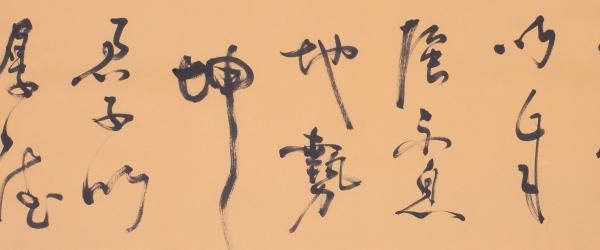 以自
强不息
地勢
坤
君子以
厚德